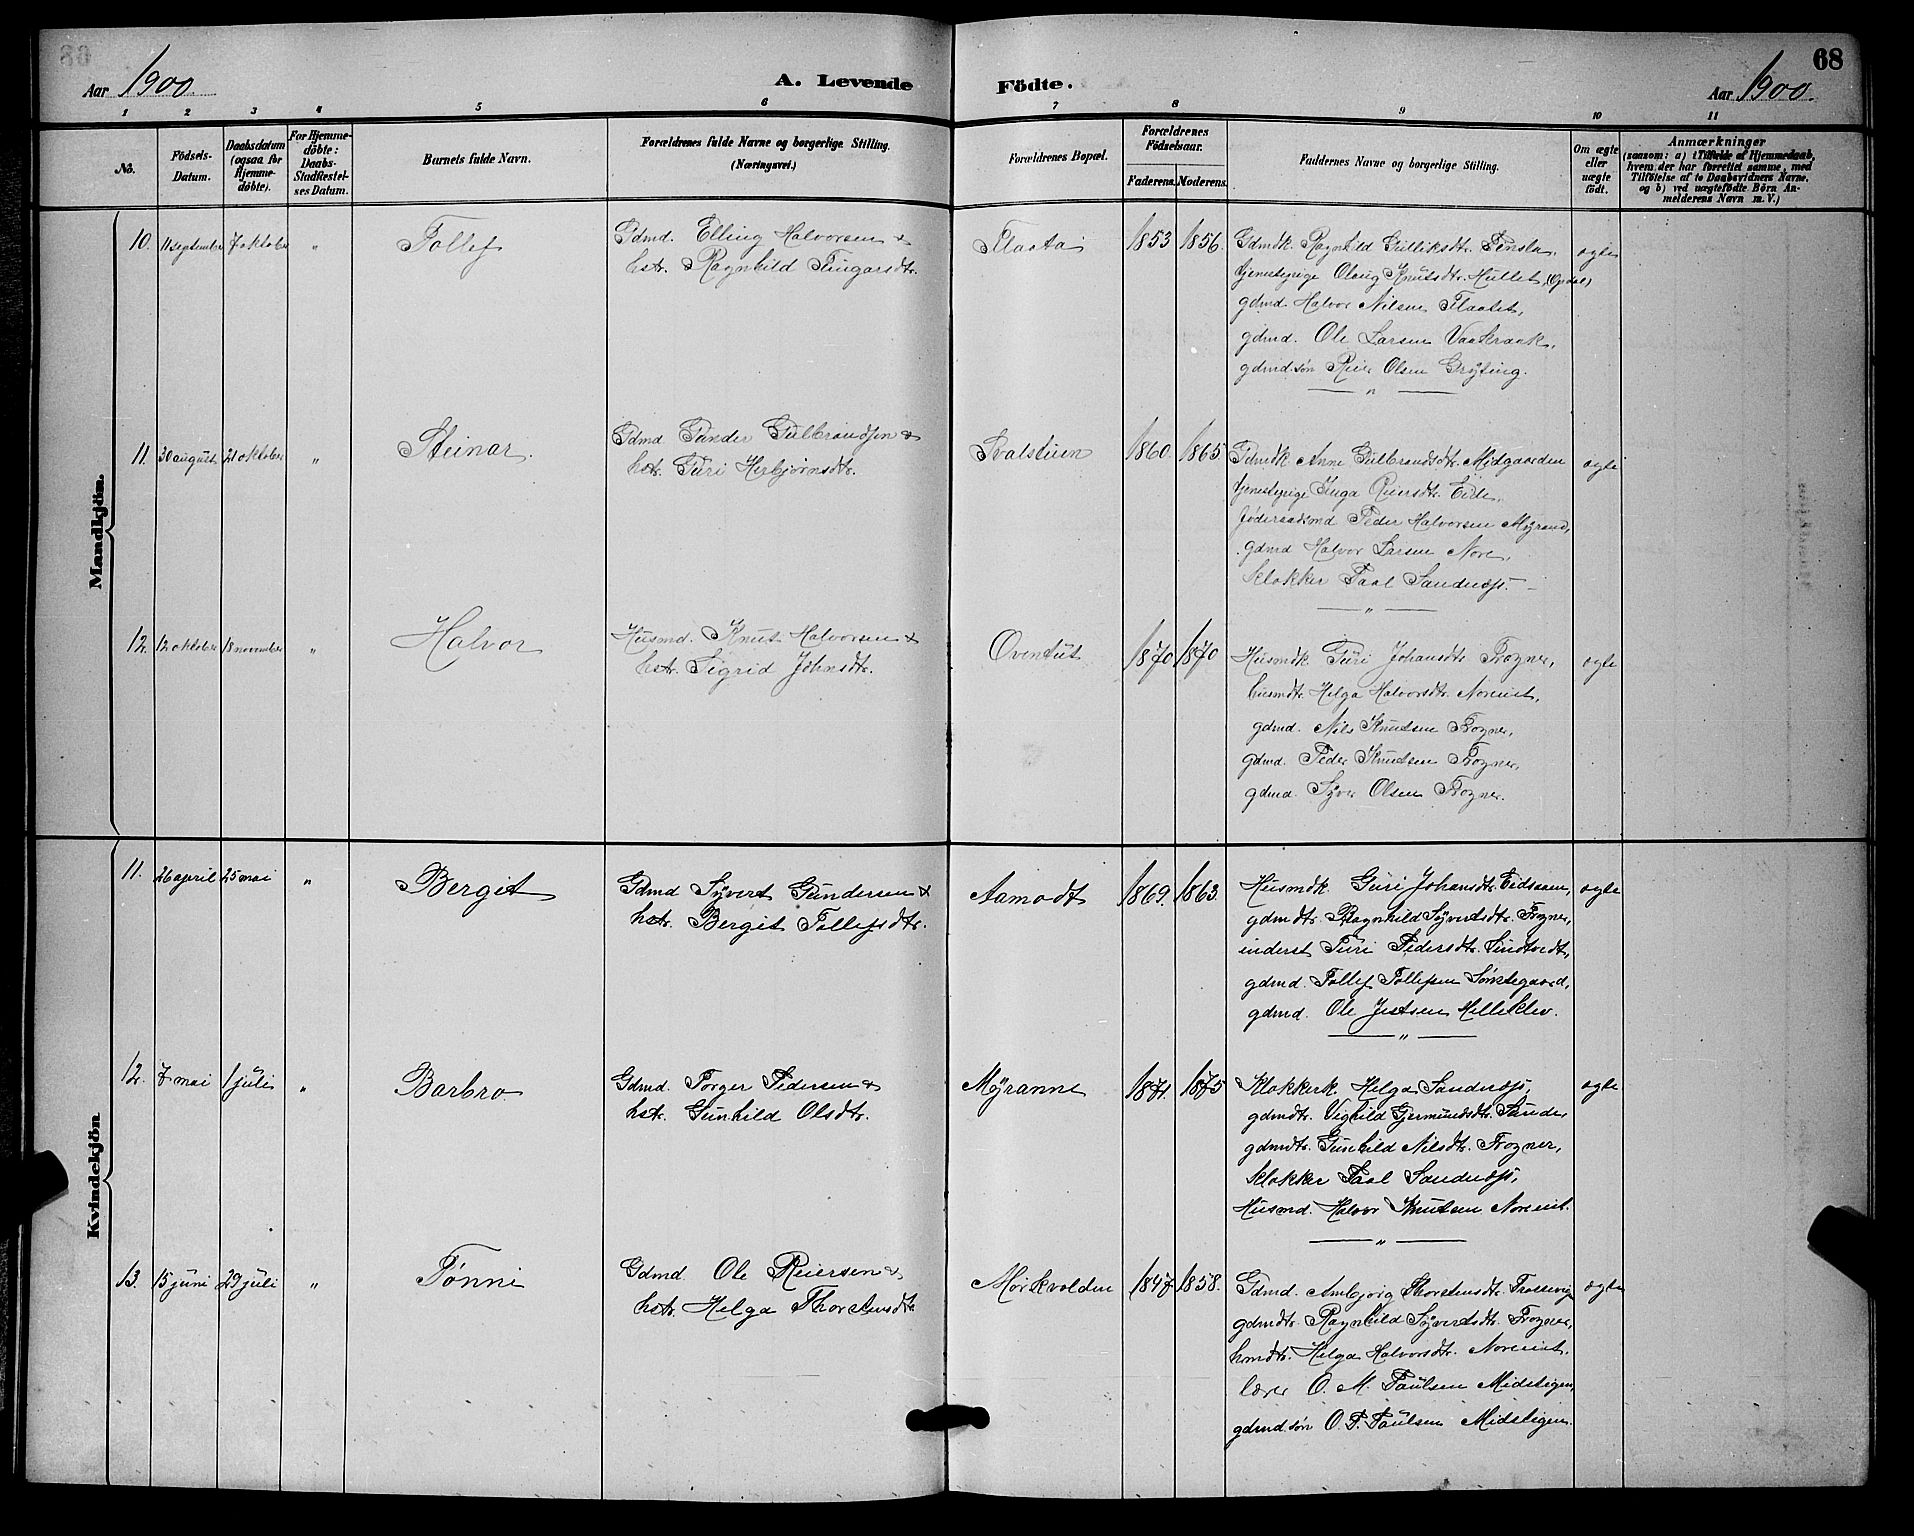 68
Aar 1900
A. Levende Födte.
Aar 1900.
1 2 3 4 5 6 7 8 9 10 11
No.
Födsels-
Datum.
Daabsdatum
(ogsaa for
Hjemme-
döbte).
For Hjemme-
döbte:
Daabs-
Stadfæstel-
ses Datum.
Barnets fulde Navn.
Forældrenes fulde Navne og borgerlige Stilling.
(Næringsvei.)
Forældrenes Bopæl.
Forældrenes
Födselsaar.
Faderens. Moderens.
Faddernes Navne og borgerlige Stilling.
Om ægte
eller
uægte
födt.
Anmærkninger
(saasom: a) i Tilfælde af Hjemmedaab,
hvem der har forrettet samme, med
Tilföielse af to Daabsvidners Navne,
og b) ved uægtefödte Börn An-
melderens Navn m. V.)
Mandkjön.
10. 11 september 7 oktober " Tollef
Gdmd. Elling Halvorsen &
hstr. Ragnhild Tingarsdtr.
Flaata 1853 1856.
Gdmdk. Ragnhild Gulliksdtr. Tensla,
tjenestepige Olaug Knutsdtr. Hullet, (Opdal)
gdmd. Halvor Nilsen Flaatet,
gdmd. Ole Larsen Vaakraak,
gdmd.søn Reier Olsen Grøting.
ægte
— " —
11. 30 august 21 oktober " Steinar.
Gdmd. Gunder Gulbrandsen &
hstr. Guri Herbjørnsdtr.
Svalstuen 1860. 1865
Gdmdk. Anne Gulbrandsdtr. Midgaarden
tjenestepige Inga Reiersdtr. Eide,
föderaadsmd Peder Halvorsen Myrand,
gdmd Halvor Larsen Nore,
klokker Paal Sandnæss.
ægte
— " —
12. 12 oktober 18 november " Halvor
Husmd. Knut Halvorsen &
hstr. Sigrid Johnsdtr.
Oventut 1870 1870
Husmdk. Guri Johansdtr. Frogner,
husmdtr. Helga Halvorsdtr. Noreiet,
gdmd. Nils Knutsen Frogner,
gdmd. Peder Knutsen Frogner,
gdmd. Syver Olsen Frogner.
ægte
Kvindekjön.
11. 26 april 25 mai " Bergit
Gdmd Syvert Gundersen &
hstr. Bergit Tollefsdtr.
Aamodt 1869. 1863.
Husmdk. Guri Johansdtr. Eidsaaen,
gdmdtr. Ragnhild Syvertsdtr. Frogner,
inderst Turi Pedersdtr. Sundtvedt,
gdmd. Tollef Tollefsen Sønstegaard,
gdmd. Ole Jestsen Helleklev.
ægte
— " —
12. 7 mai 1 juli " Barbro
Gdmd. Torger Pedersen &
hstr. Gunhild Olsdtr.
Myranne 1871. 1875
Klokkerk. Helga Sandnæss,
gdmdtr. Vighild Gjermundsdtr. Sande,
gdmdtr. Gunhild Nilsdtr. Frogner,
klokker Paal Sandnæss,
Husmd. Halvor Knutsen Noreiet.
ægte
— " —
13. 15 juni 29 juli " Tønni
Gdmd Ole Reiersen &
hstr. Helga Thorstensdtr.
Mørkvolden 1847 1858.
Gdmd. Ambjørg Thorstensdtr. Traaevig
gdmdtr. Ragnhild Syvertsdtr. Frogner,
hmdtr. Helga Halvorsdtr. Noreiet.
lærer O. M. Paulsen Midstigen,
gdmd.søn O. P. Paulsen Midstigen.
ægte